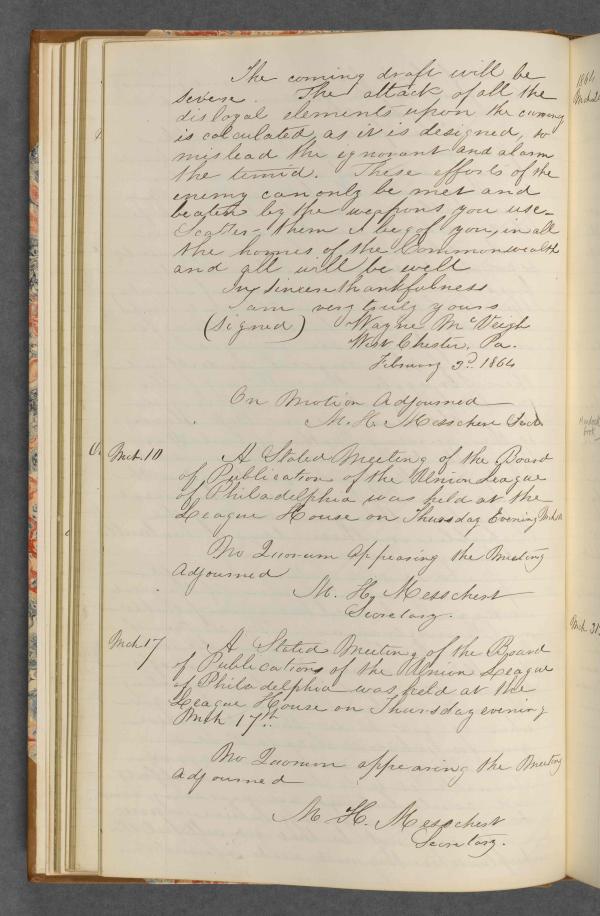 The coming draft will be
severe. The attack of all the
disloyal elements upon the coming
is calculated, as it is designed, to
mislead the ignorant and alarm
the timid. These efforts of the
enemy can only be met and
beaten by the weapons you use -
Scatter them I beg of you, in all
the homes of the Commonwealth
and all will be well
In sincere thankfulness
I am very truly yours
(Signed) Wayne McVeigh
West Chester, Pa.
February 3d. 1864
On Motion Adjourned
M. H. Messchert Sect.
Mch. 10 A Stated Meeting of the Board
of Publication of the Union League
of Philadelphia was held at the
League House on Thursday Evening Mch 10
No Quorum appearing the Meeting
adjourned
M. H. Messchert
Secretary.
Mch 17 A Stated Meeting of the Board
of Publication of the Union League
of Philadelphia was held at the
League House on Thursday evening
Mch 17th
No Quorum appearing the Meeting
adjourned
M. H. Messchert
Secretary.
1864
Mch 31